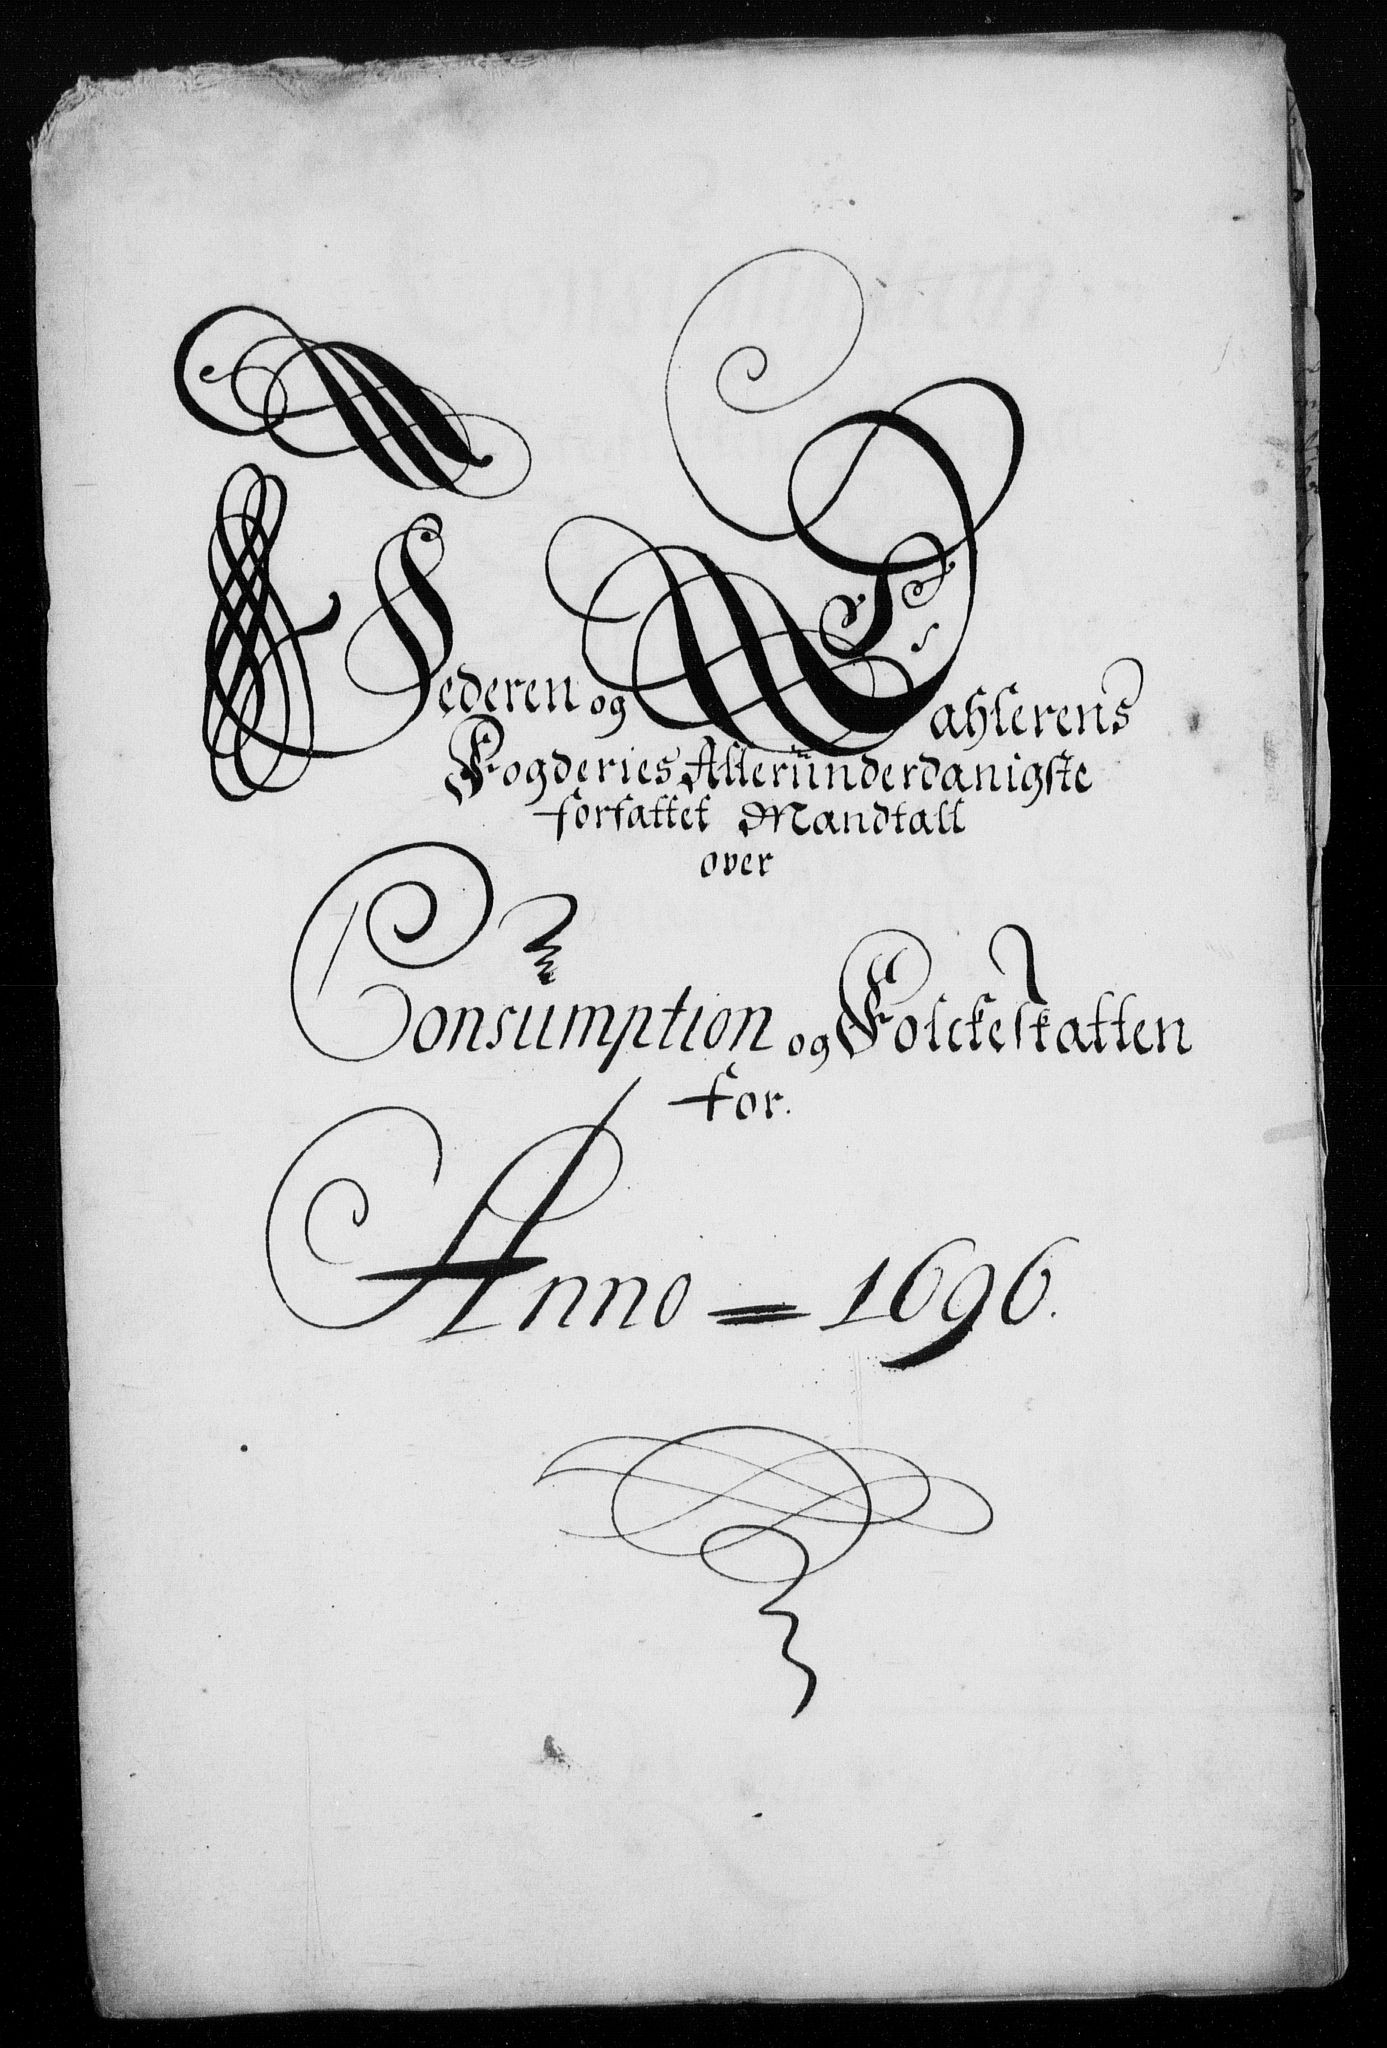 Jederen og Dahlerens
Fogderies Alleründerdanigste
forfattet Mandtall
over
Consümption og Folckeskatten
for.
Anno = 1696.